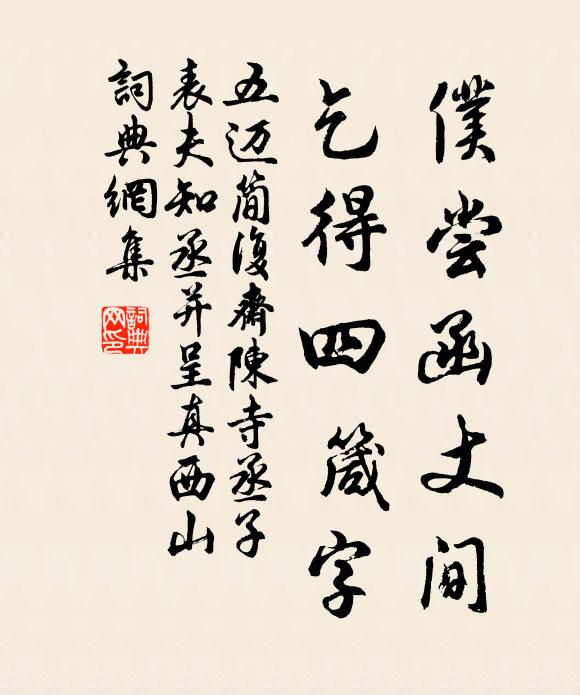 僕尝函丈间
乞得四箴字
五迈简復齋陳寺丞子
表夫知丞并呈真西山
詞典網集
詞典网印